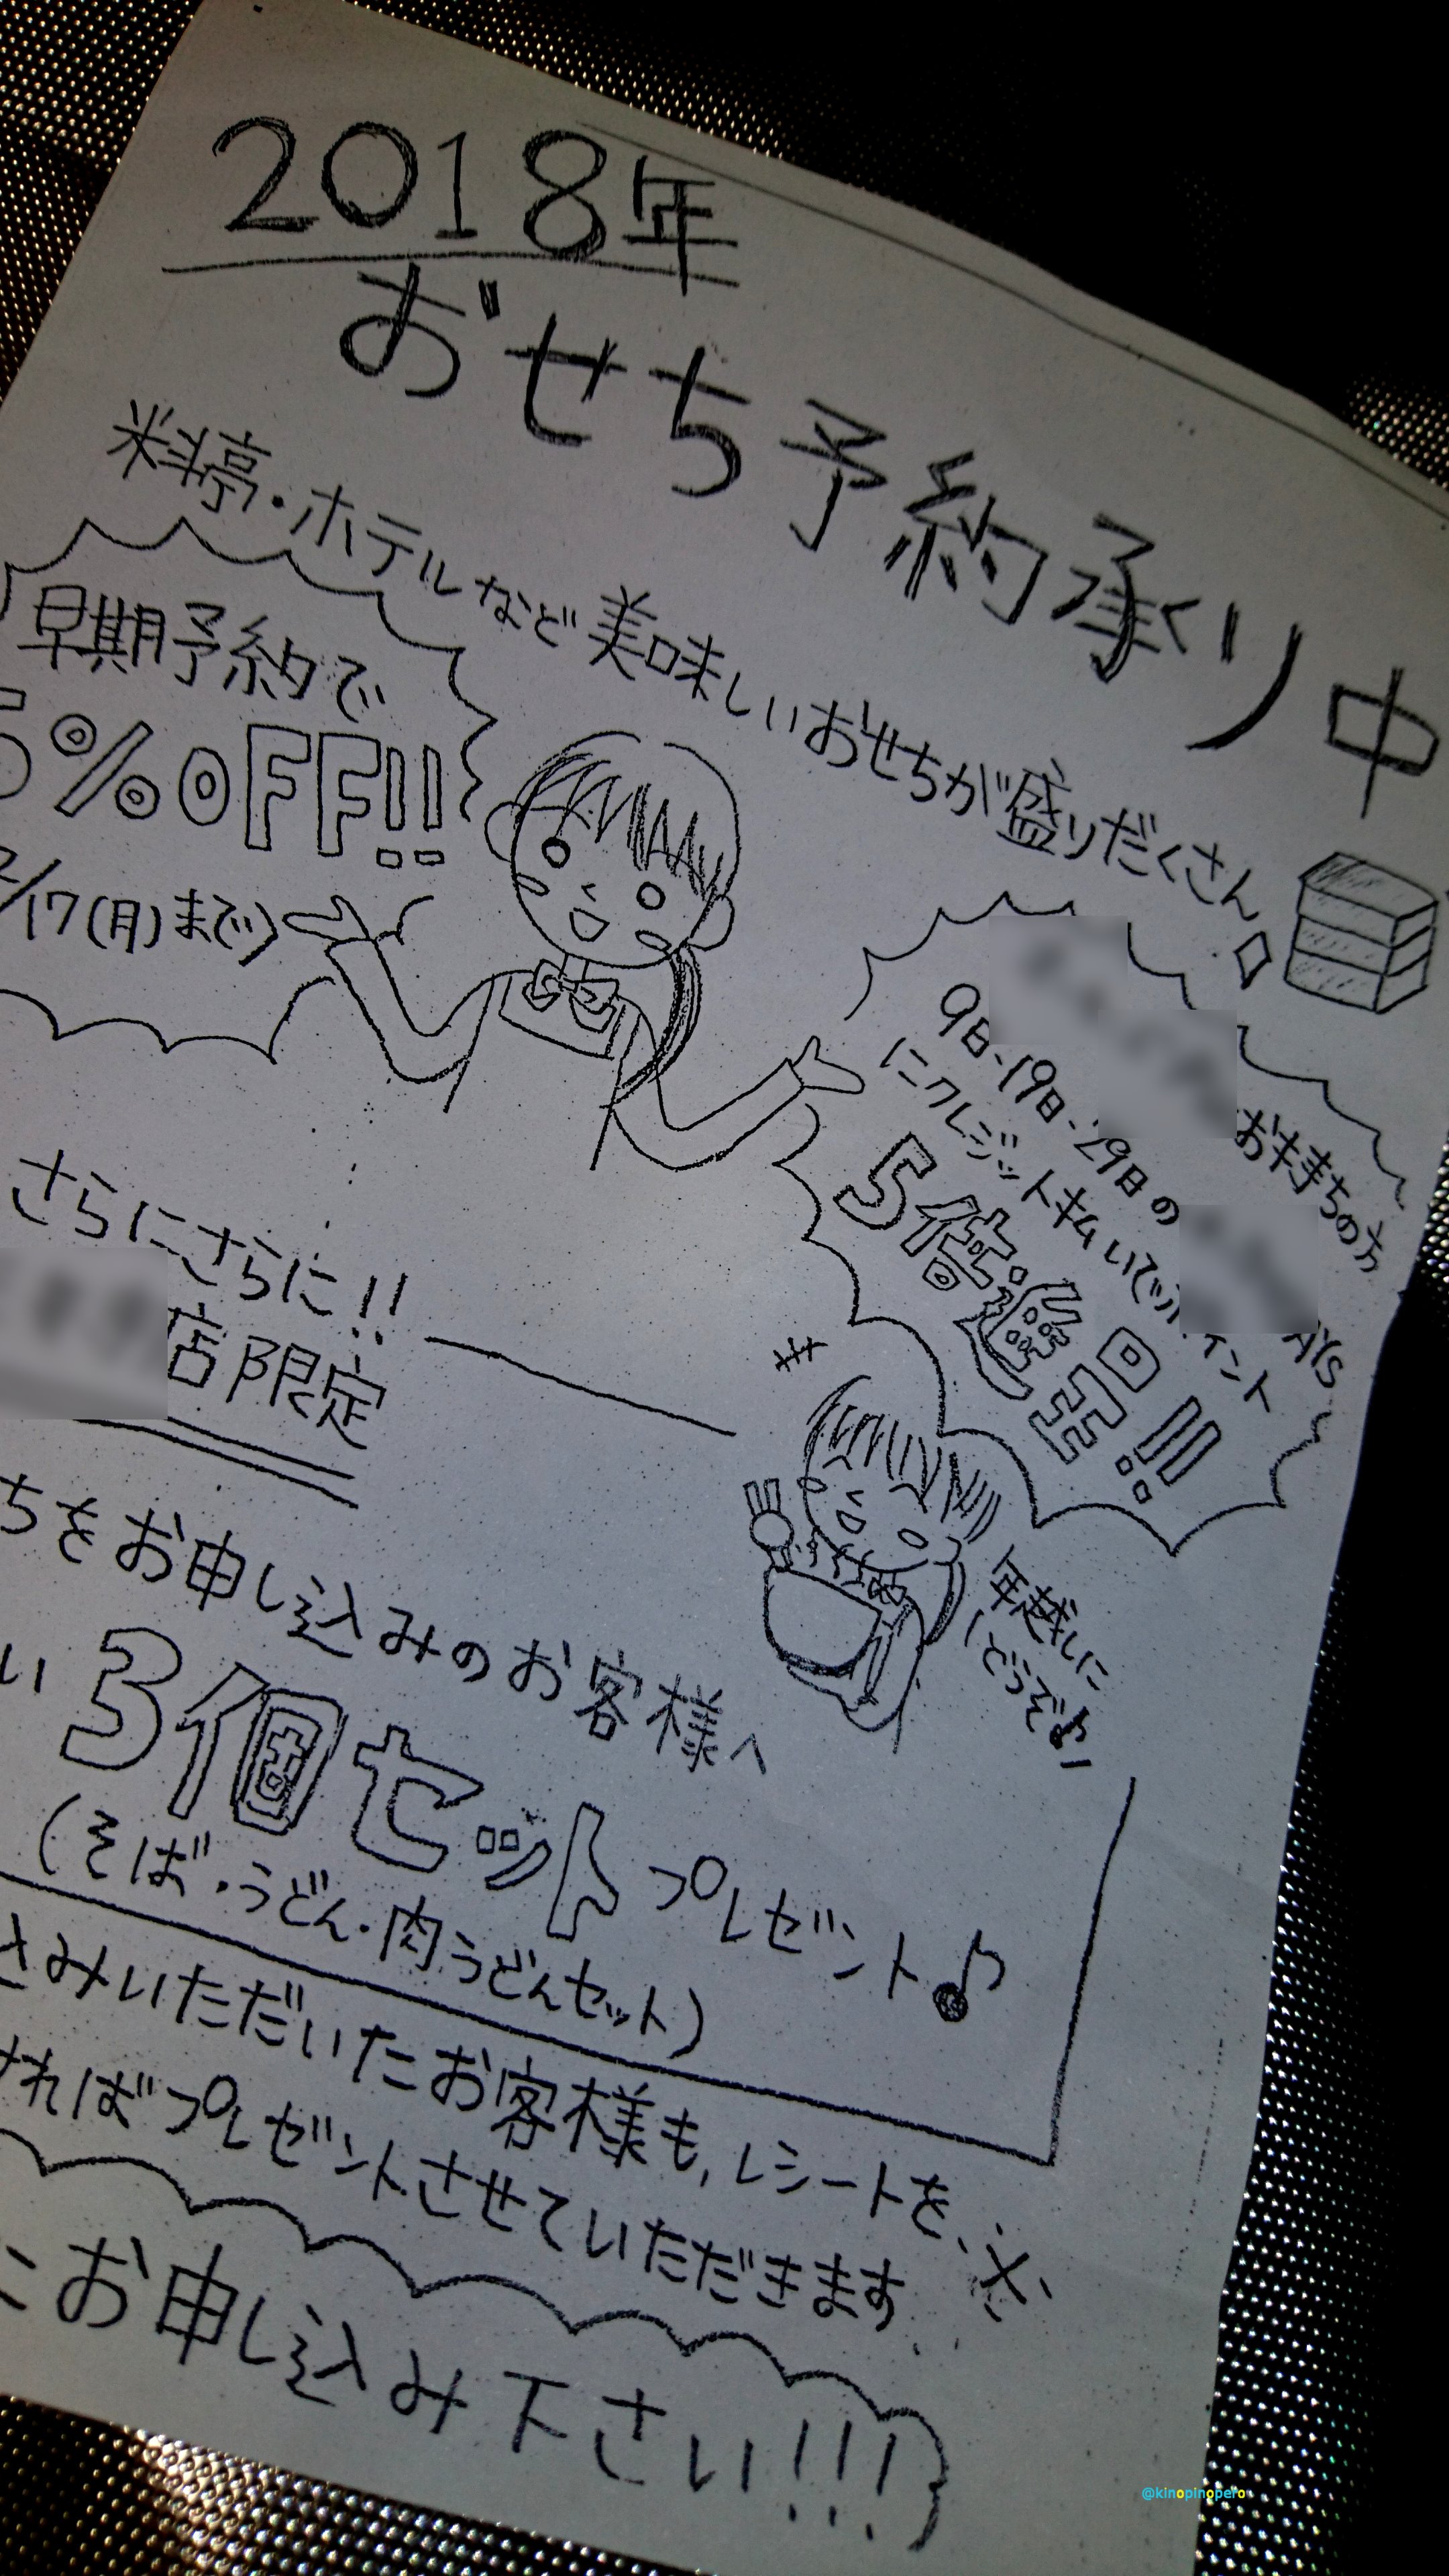 2018年
おせち予約承り中
料亭・ホテルなど美味しいおせちが盛りだくさん
早期予約で
5%OFF!!
2/17(月)まで
お持ちの方
9日・19日・29日の
AYS
にクレジット払いで
イント
5倍進呈!!
さらにさらに!!
店限定
ちをお申し込みのお客様へ
い3個セットプレゼント♪
(そば・うどん・肉うどんセット)
年越しに
どうぞ♪
込みいただいたお客様も,レシートを、
ければプレゼントさせていただきます
にお申し込み下さい!!!
@kinopinopero